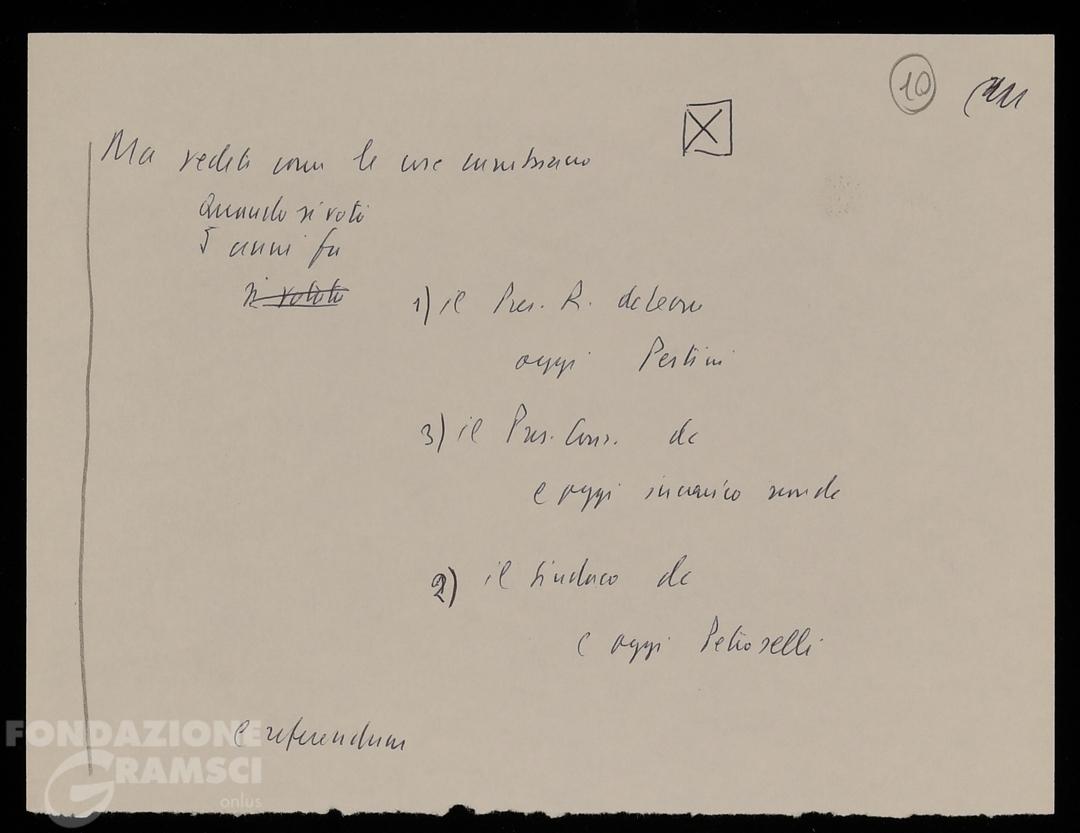 10
Ma vedete come le cose cambiano
Quando si votò
5 anni fa
si votato
1) il Pres. R. da Leone
oggi Pertini
3) il Pres. Cons. dc
e oggi incarico
2) il Sindaco dc
e oggi Petroselli
e referendum
FONDAZIONE
GRAMSCI
onlus